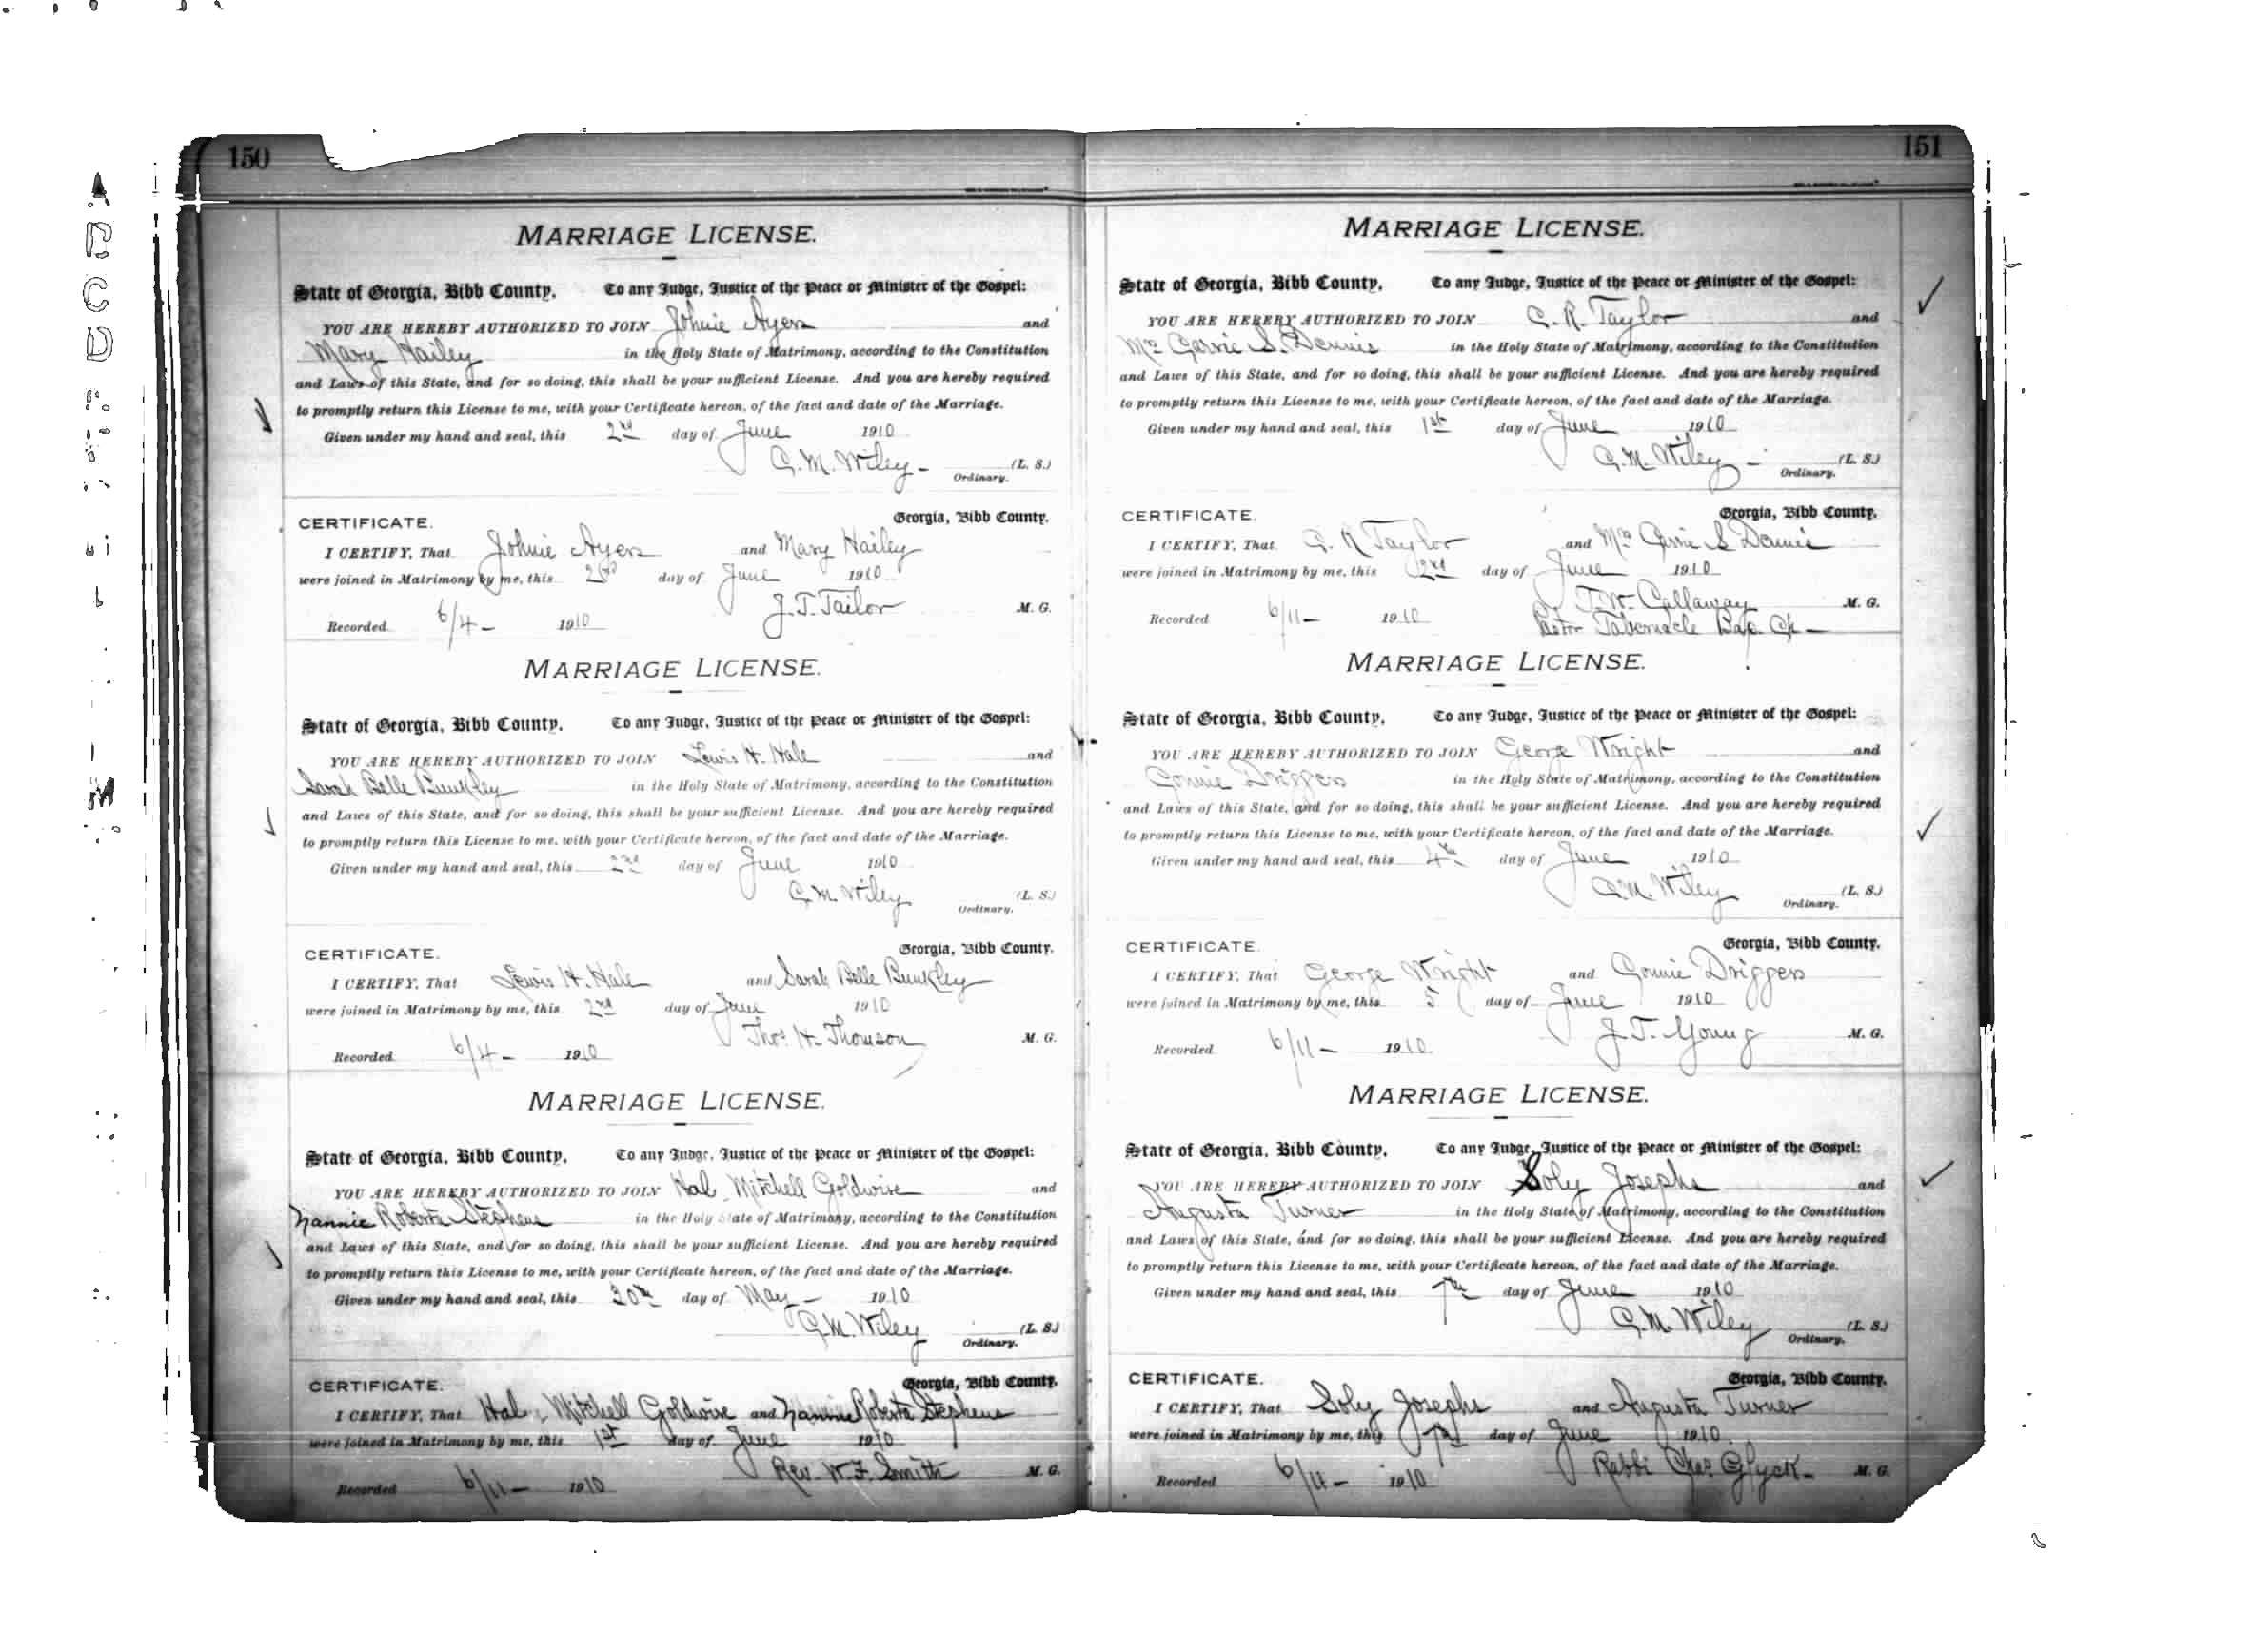 150
MARRIAGE LICENSE.
State of Georgia, Bibb County. To any Judge, Justice of the Peace or Minister of the Gospel:
YOU ARE HEREBY AUTHORIZED TO JOIN Johnie Ayers and
Mary Hailey in the Holy State of Matrimony, according to the Constitution
and Laws of this State, and for so doing, this shall be your sufficient License. And you are hereby required
to promptly return this License to me, with your Certificate hereon, of the fact and date of the Marriage.
Given under my hand and seal, this 2nd day of June 1910
G. M. Wiley - (L. S.)
Ordinary.
CERTIFICATE. Georgia, Bibb County.
I CERTIFY, That Johnie Ayers and Mary Hailey
were joined in Matrimony by me, this day of June 1910
J. T. Tailor M. G.
Recorded 6/4 - 1910
MARRIAGE LICENSE.
State of Georgia, Bibb County. To any Judge, Justice of the Peace or Minister of the Gospel:
YOU ARE HEREBY AUTHORIZED TO JOIN Lewis H. Hale and
Sarah Belle Bunkley in the Holy State of Matrimony, according to the Constitution
and Laws of this State, and for so doing, this shall be your sufficient License. And you are hereby required
to promptly return this License to me, with your Certificate hereon, of the fact and date of the Marriage.
Given under my hand and seal, this 2nd day of June 1910
G. M. Wiley (L. S.)
Ordinary.
CERTIFICATE. Georgia, Bibb County.
I CERTIFY, That Lewis H. Hale and Sarah Belle Bunkley
were joined in Matrimony by me, this 2nd day of June 1910
Thos. H. Thomson M. G.
Recorded 6/4 - 1910
MARRIAGE LICENSE.
State of Georgia, Bibb County. To any Judge, Justice of the Peace or Minister of the Gospel:
YOU ARE HEREBY AUTHORIZED TO JOIN Hal Mitchell Goldwire and
Nannie Roberta Stephens in the Holy State of Matrimony, according to the Constitution
and Laws of this State, and for so doing, this shall be your sufficient License. And you are hereby required
to promptly return this License to me, with your Certificate hereon, of the fact and date of the Marriage.
Given under my hand and seal, this 30th day of May - 1910
G. M. Wiley (L. S.)
Ordinary.
CERTIFICATE. Georgia, Bibb County.
I CERTIFY, That Hal Mitchell Goldwire and Nannie Roberta Stephens
were joined in Matrimony by me, this 1st day of June 1910
Rev. W. F. Smith M. G.
Recorded 6/11 - 1910
151
MARRIAGE LICENSE.
State of Georgia, Bibb County. To any Judge, Justice of the Peace or Minister of the Gospel:
YOU ARE HEREBY AUTHORIZED TO JOIN C. R. Taylor and
Mrs Carrie S. Dennis in the Holy State of Matrimony, according to the Constitution
and Laws of this State, and for so doing, this shall be your sufficient License. And you are hereby required
to promptly return this License to me, with your Certificate hereon, of the fact and date of the Marriage.
Given under my hand and seal, this 1st day of June 1910
G. M. Wiley - (L. S.)
Ordinary.
CERTIFICATE. Georgia, Bibb County.
I CERTIFY, That C. R Taylor and Mrs Carrie S Dennis
were joined in Matrimony by me, this 2nd day of June 1910
T. W. Callaway M. G.
Pastor Tabernacle Bap. Ch -
Recorded 6/11 - 1910
MARRIAGE LICENSE.
State of Georgia, Bibb County. To any Judge, Justice of the Peace or Minister of the Gospel:
YOU ARE HEREBY AUTHORIZED TO JOIN George Wright and
Connie Driggers in the Holy State of Matrimony, according to the Constitution
and Laws of this State, and for so doing, this shall be your sufficient License. And you are hereby required
to promptly return this License to me, with your Certificate hereon, of the fact and date of the Marriage.
Given under my hand and seal, this 4th day of June 1910
G. M. Wiley (L. S.)
Ordinary.
CERTIFICATE. Georgia, Bibb County.
I CERTIFY, That George Wright and Connie Driggers
were joined in Matrimony by me, this 5 day of June 1910
J. T. Young M. G.
Recorded 6/11 - 1910
MARRIAGE LICENSE.
State of Georgia, Bibb County. To any Judge, Justice of the Peace or Minister of the Gospel:
YOU ARE HEREBY AUTHORIZED TO JOIN Soly Josephs and
Augusta Turner in the Holy State of Matrimony, according to the Constitution
and Laws of this State, and for so doing, this shall be your sufficient License. And you are hereby required
to promptly return this License to me, with your Certificate hereon, of the fact and date of the Marriage.
Given under my hand and seal, this 7th day of June 1910
G. M. Wiley (L. S.)
Ordinary.
CERTIFICATE. Georgia, Bibb County.
I CERTIFY, That Soly Josephs and Augusta Turner
were joined in Matrimony by me, this 7th day of June 1910.
Rabbi Chas Glyck - M. G.
Recorded 6/11 - 1910